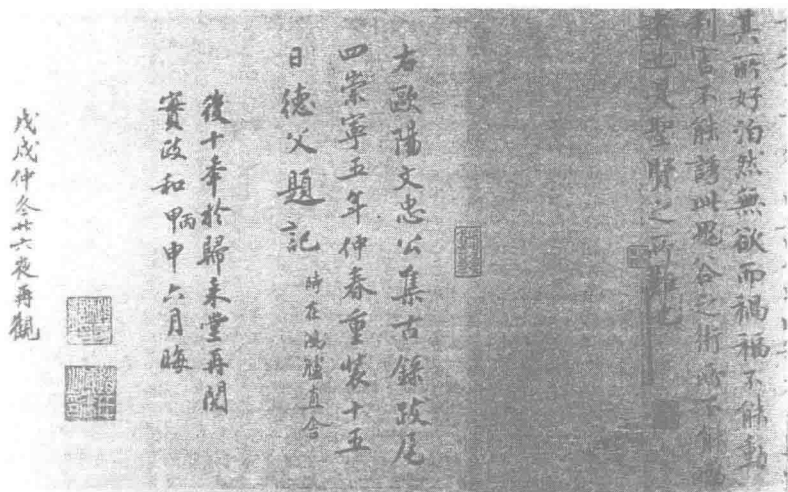 其所好泊然無欲而禍福不能動
利害不能誘此鬼谷之術所不能為
者也是聖賢之所難也
右歐陽文忠公集古錄跋尾
四崇寧五年仲春重裝十五
日德父題記 時在鴻臚直舍
後十年於歸來堂再閱
實政和甲丙申六月晦
戊戌仲冬廿六夜再觀